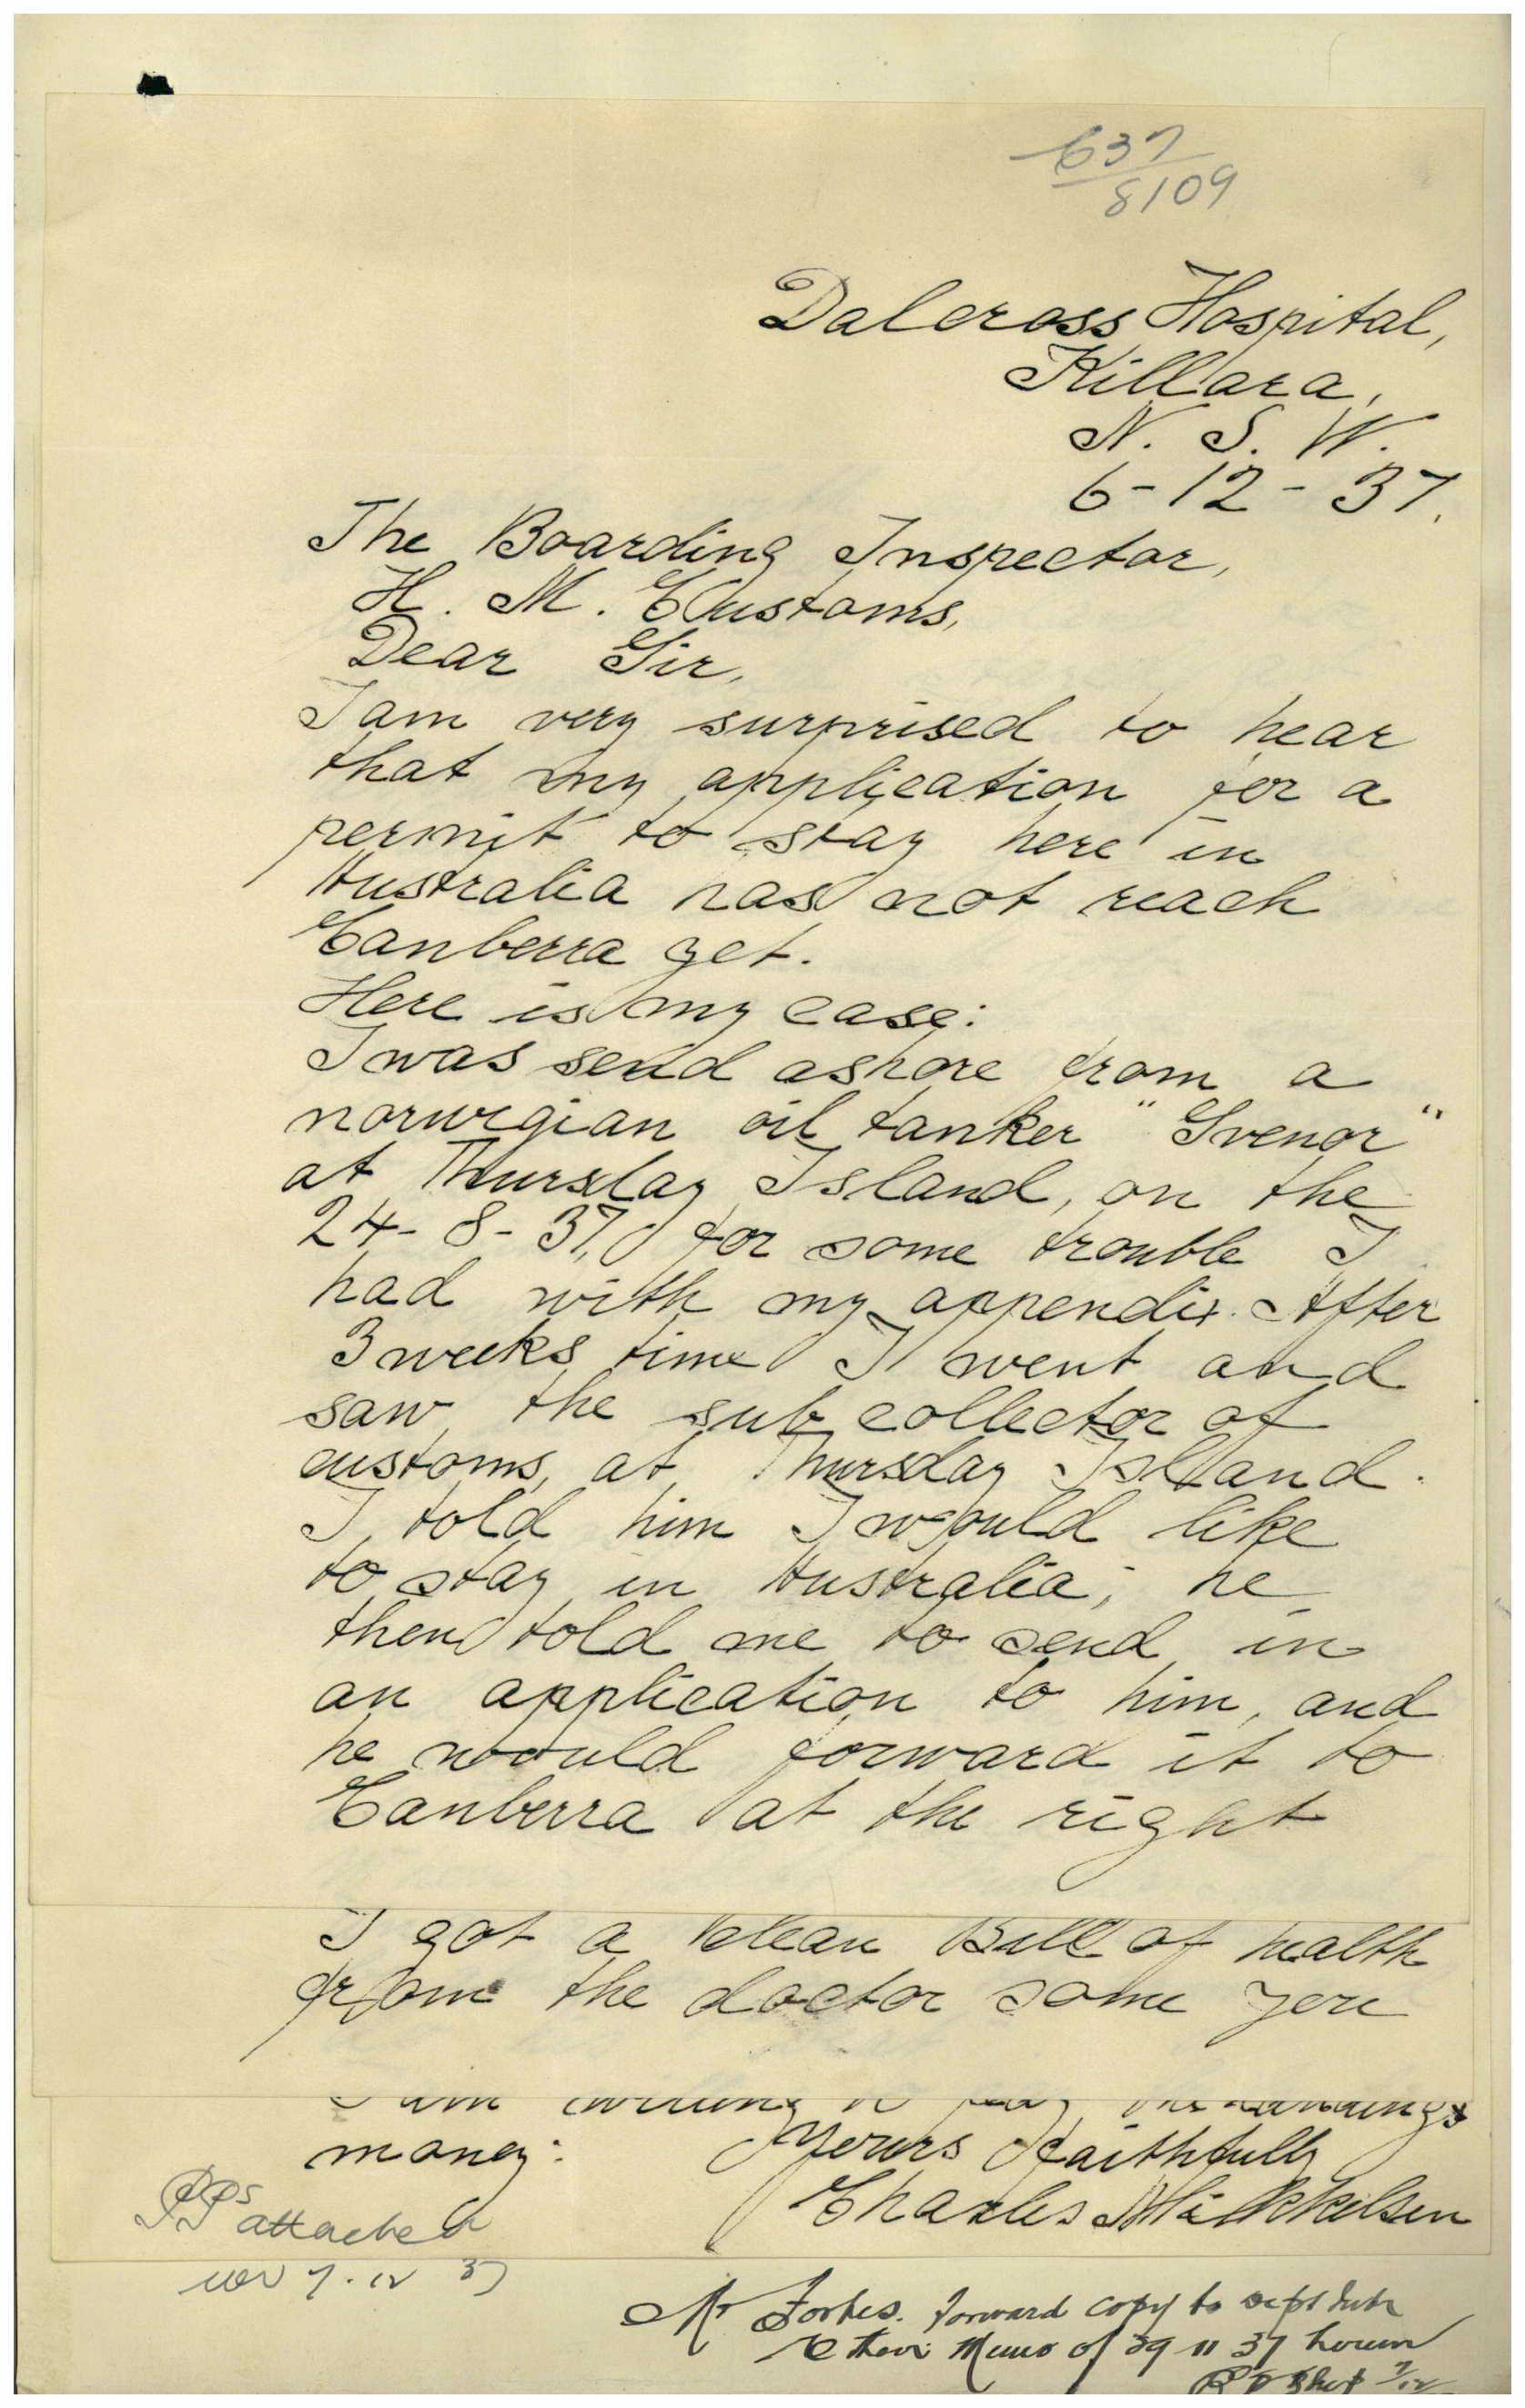 637
8109
Dalcross Hospital,
Killara,
N. S. W.
6-12-37.
The Boarding Inspector,
H. M. Customs,
Dear Sir,
I am very surprised to hear
that my application for a
permit to stay here in
Australia has not reach
Canberra yet.
Here is my case:
I was send ashore from a
norwegian oil tanker "Svenor"
at Thursday Island, on the
24-8-37, for some trouble I
had with my appendix. After
3 weeks time I went and
saw the sub collector of
customs, at Thursday Island.
I told him I would like
to stay in Australia; he
then told me to send in
an application to him, and
he would forward it to
Canberra at the right
I got a clean Bill of health
from the doctor some
I am willing to pay the landings
money.
Yours Faithfully
Charles Mikkelsen
PPs
attached
7.12 37
Mr Forbes. Forward copy to
Memo of 29 11 37